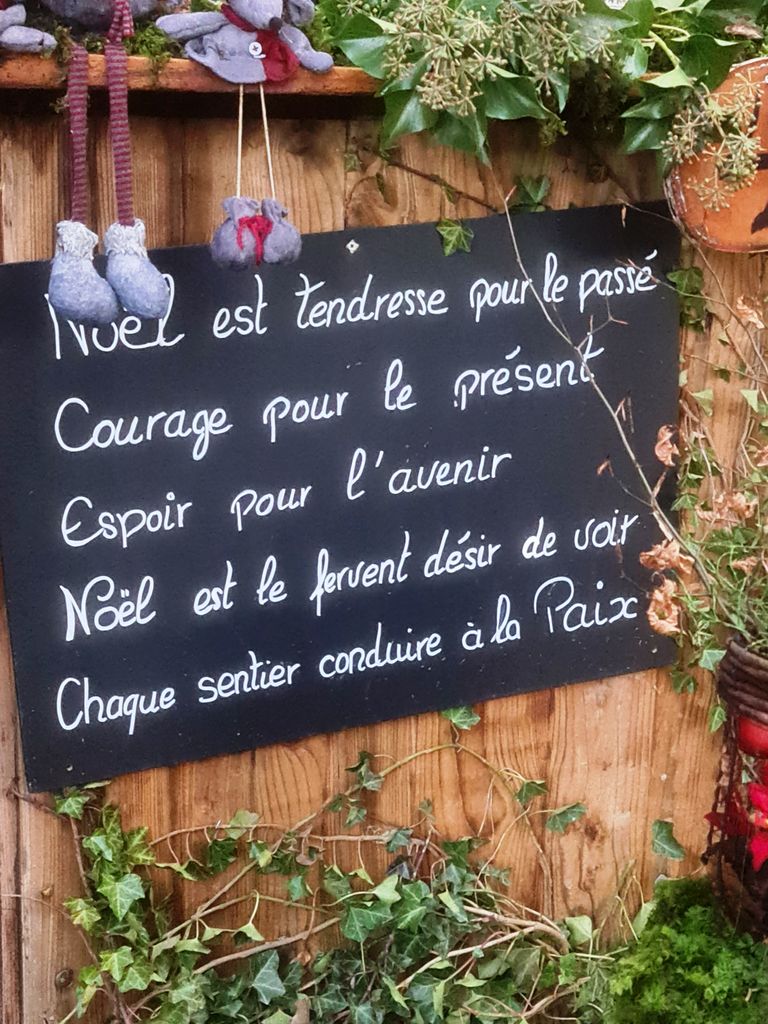 Noël est tendresse pour le passé
Courage pour le présent
Espoir pour l'avenir
Noël est le fervent désir de voir
Chaque sentier conduire à la Paix